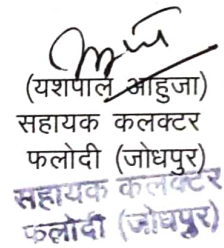 (यशपाल आहुजा)
सहायक कलक्टर
फलोदी (जोधपुर)
सहायक कलक्टर
फलोदी (जोधपुर)